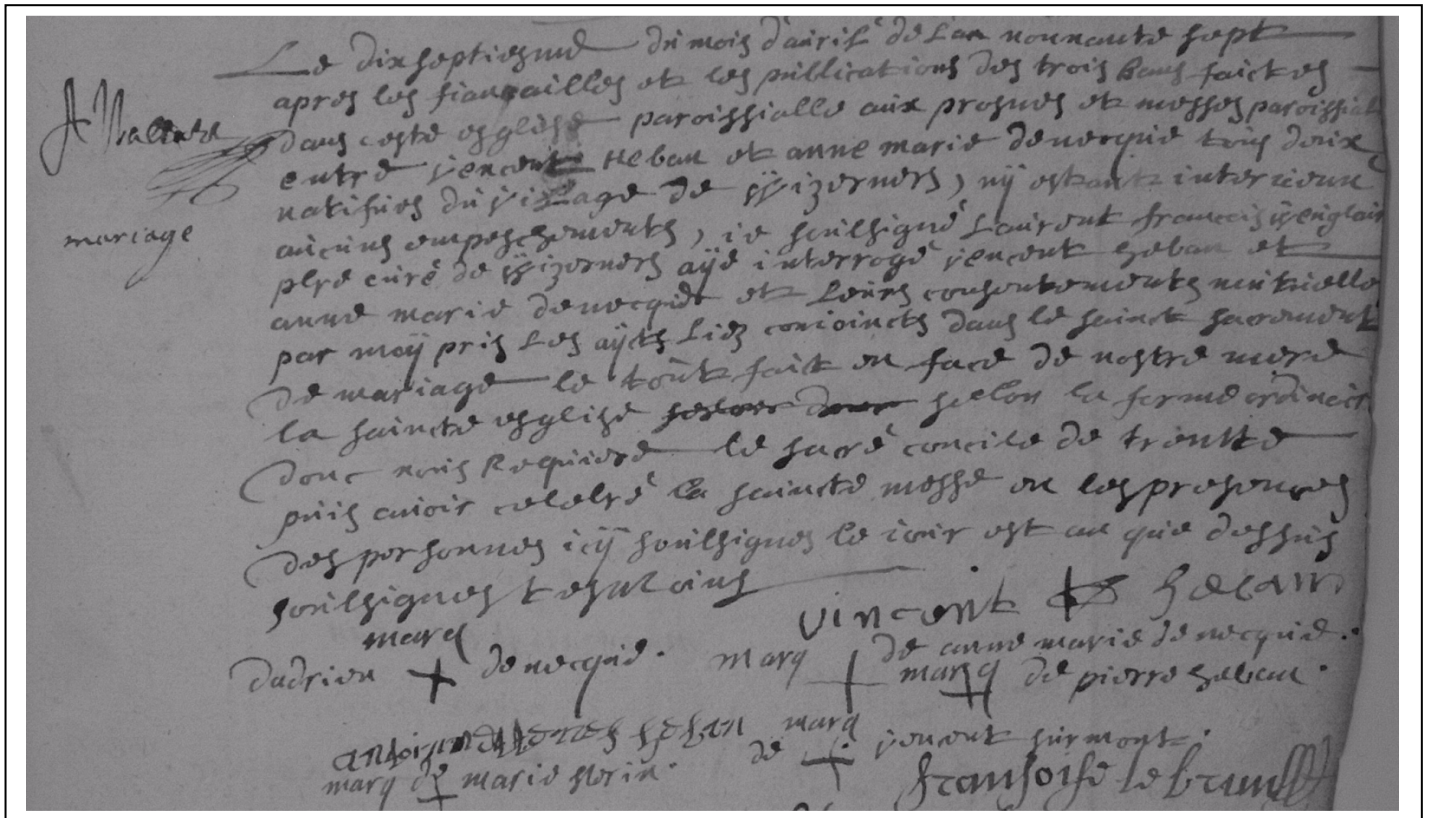 Le dixseptiesme du mois d'auril de l'an nonnante sept
apres les fiançailles et les publications des trois bans faictes
dans ceste esglise paroissialle aux prosnes et messes paroissial
entre vencent heban et anne marie denecquie tous deux
natifues du village de Wizernes, nÿ estante interuenu
aucuns empeschements, ie soubsigné Laurent francois
pbre curé de Wizernes aÿe interrogé vencent heban et
anne marie denecquie et Leurs consentements mutuelle
par moÿ pris Les aÿ Liez conioincts dans le sainct sacrement
de mariage le tout faict en face de nostre mere
la saincte esglise sellon la forme ordinair
donc nous Requiere le sacré concile de trentte
puis auoir celebré la saincte messe en les presences
des personnes icÿ soubsignes le iour est an que dessus
soubsignes tesmoins
mariage
vincent heban
marq
dadrien denecquie. marq de anne marie denecquie.
marq de pierre heban.
heban marq
de vencent surmont.
marq de marie
fransoise le brun